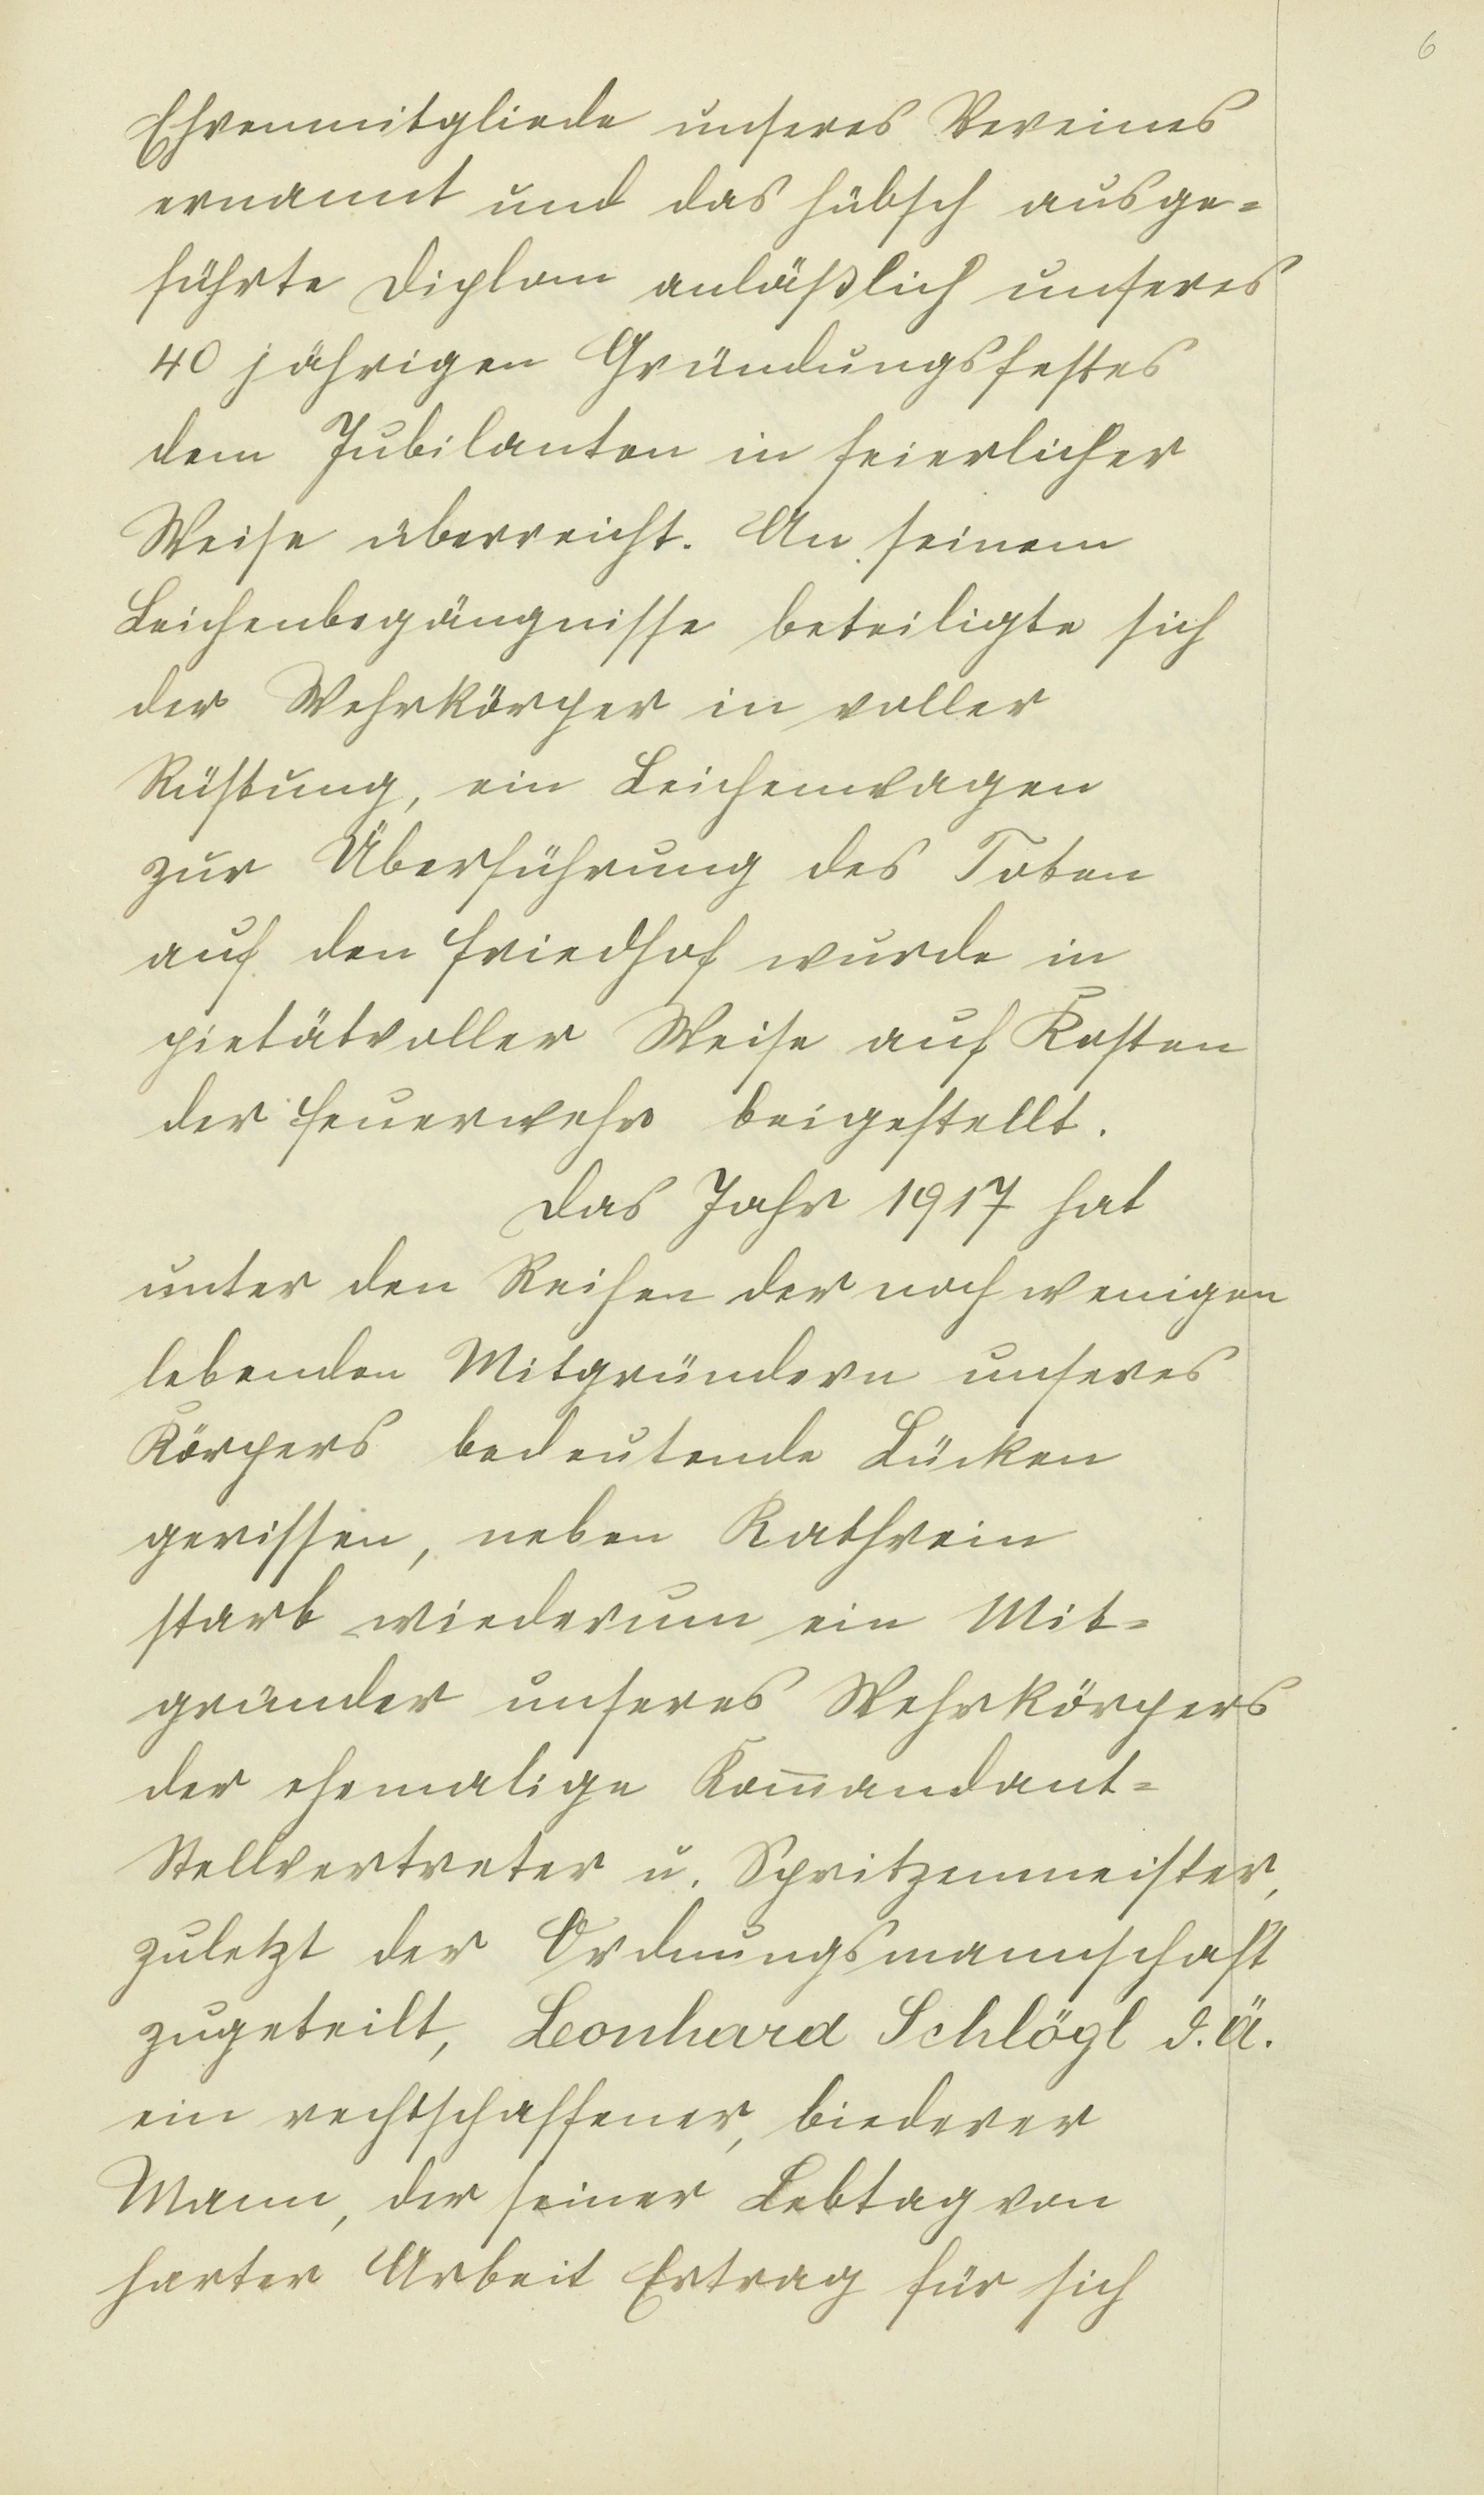 6
Ehrenmitgliede unseres Vereines
ernannt und das hübsch ausge=
führte Diplom anläßlich unseres
40 jährigen Gründungsfestes
dem Jubilanten in feierlicher
Weise überreicht. An seinem
Leichenbegängnisse beteiligte sich
der Wehrkörper in voller
Rüstung, ein Leichenwagen
zur Überführung des Toten
auf den Friedhof wurde in
pietätvoller Weise auf Kosten
der Feuerwehr beigestellt.
Das Jahr 1917 hat
unter den Reihen der noch wenigen
lebenden Mitgründern unseres
Körpers bedeutende Lücken
gerissen, neben Kathrein
starb wiederum ein Mit=
gründer unseres Wehrkörpers
der ehemalige Kom̄andant=
Stellvertreter u. Spritzenmeister,
zuletzt der Ordnungsmannschaft
zugeteilt, Leonhard Schlögl d. Ä.
ein rechtschaffener, biederer
Mann, der seiner Lebtag von
harter Arbeit Ertrag für sich